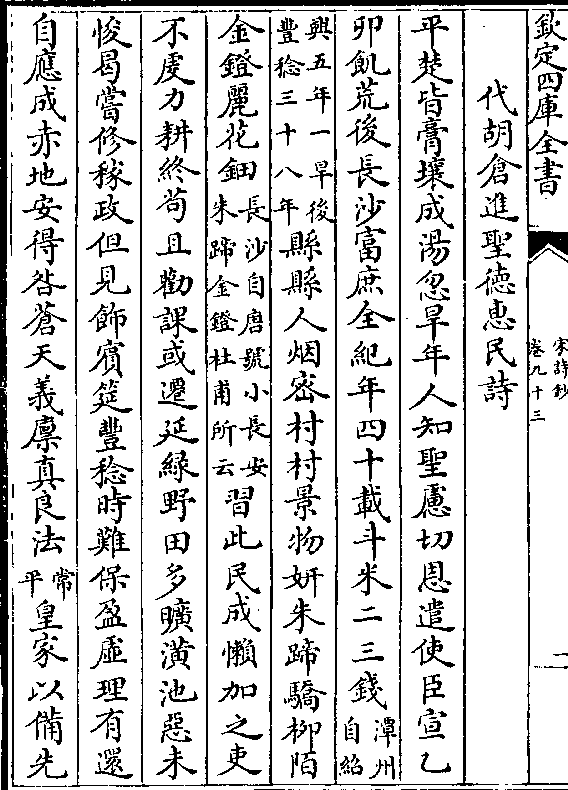 欽定四庫全書
宋詩鈔
卷九十三
一
代胡倉進聖徳惠民詩
平楚皆膏壤成湯忽旱年人知聖慮切恩遣使臣宣乙
卯飢荒後長沙富庶全紀年四十載斗米二三錢潭州自紹
興五年一旱後豐稔三十八年縣縣人烟密村村景物妍朱蹄驕柳陌
金鐙麗花鈿長沙自唐號小長安朱蹄金鐙杜甫所云習此民成懶加之吏
不虔力耕終苟且勸課或遷延緑野田多曠潢池惡未
悛曷嘗修稼政但見飾賓筵豐稔時難保盈虛理有還
自應成赤地安得咎蒼天義廩真良法常平皇家以備先